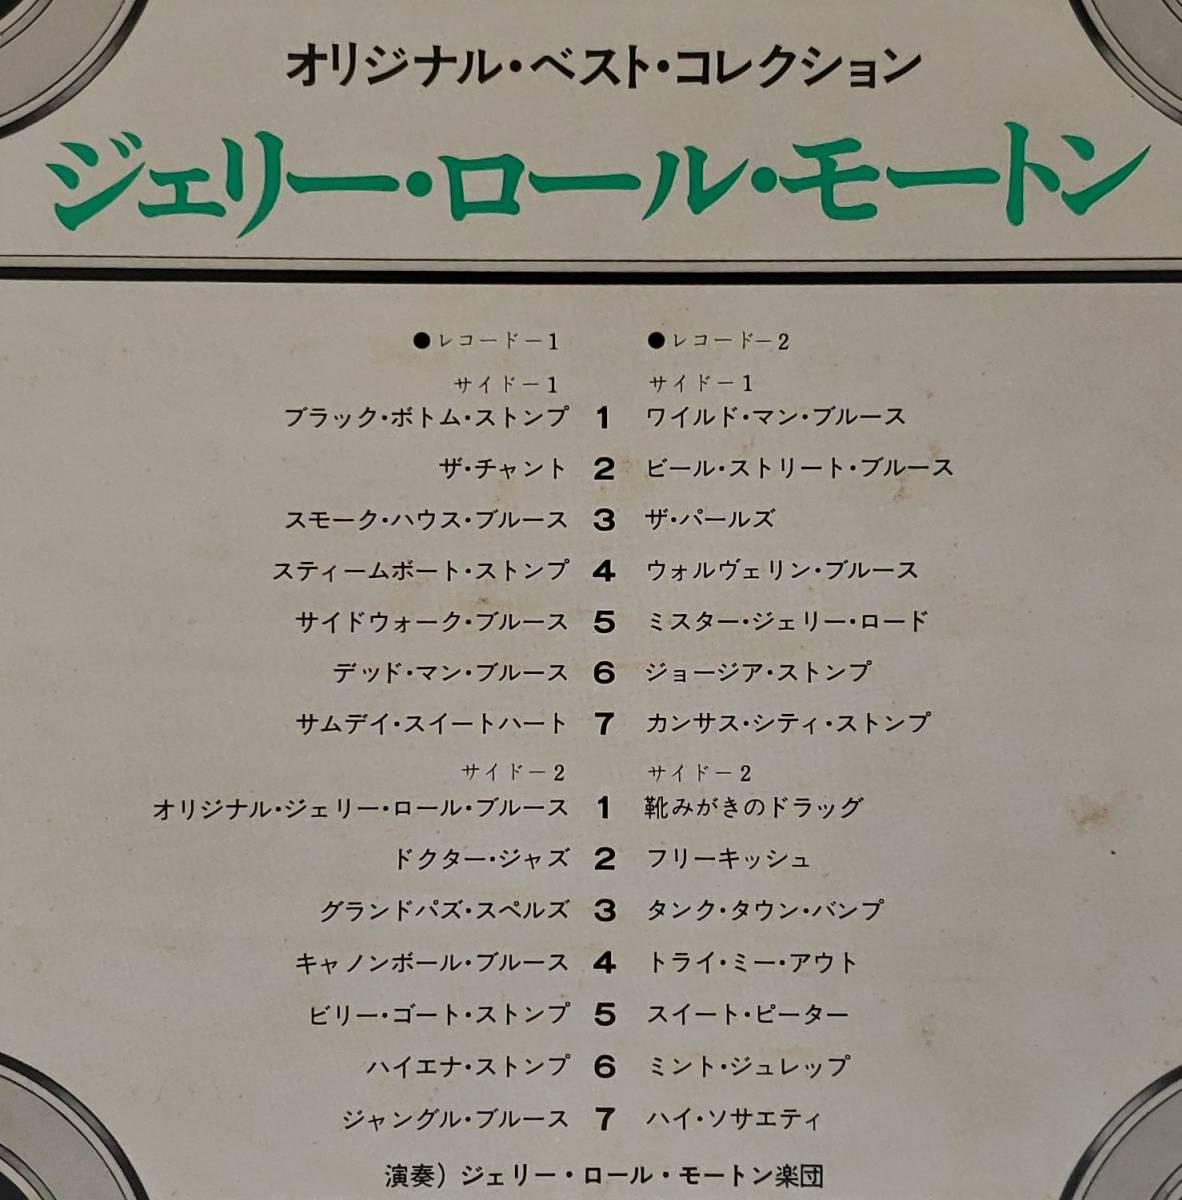 オリジナル・ベスト・コレクション
ジェリー・ロール・モートン
●レコード-1
サイド-1
ブラック・ボトム・ストンプ 1
ザ・チャント 2
スモーク・ハウス・ブルース 3
スティームボート・ストンプ 4
サイドウォーク・ブルース 5
デッド・マン・ブルース 6
サムデイ・スイートハート 7
サイド-2
オリジナル・ジェリー・ロール・ブルース 1
ドクター・ジャズ 2
グランドパズ・スペルズ 3
キャノンボール・ブルース 4
ビリー・ゴート・ストンプ 5
ハイエナ・ストンプ 6
ジャングル・ブルース 7
●レコード-2
サイド-1
ワイルド・マン・ブルース
ビール・ストリート・ブルース
ザ・パールズ
ウォルヴェリン・ブルース
ミスター・ジェリー・ロード
ジョージア・ストンプ
カンサス・シティ・ストンプ
サイド-2
靴みがきのドラッグ
フリーキッシュ
タンク・タウン・バンプ
トライ・ミー・アウト
スイート・ピーター
ミント・ジュレップ
ハイ・ソサエティ
演奏）ジェリー・ロール・モートン楽団